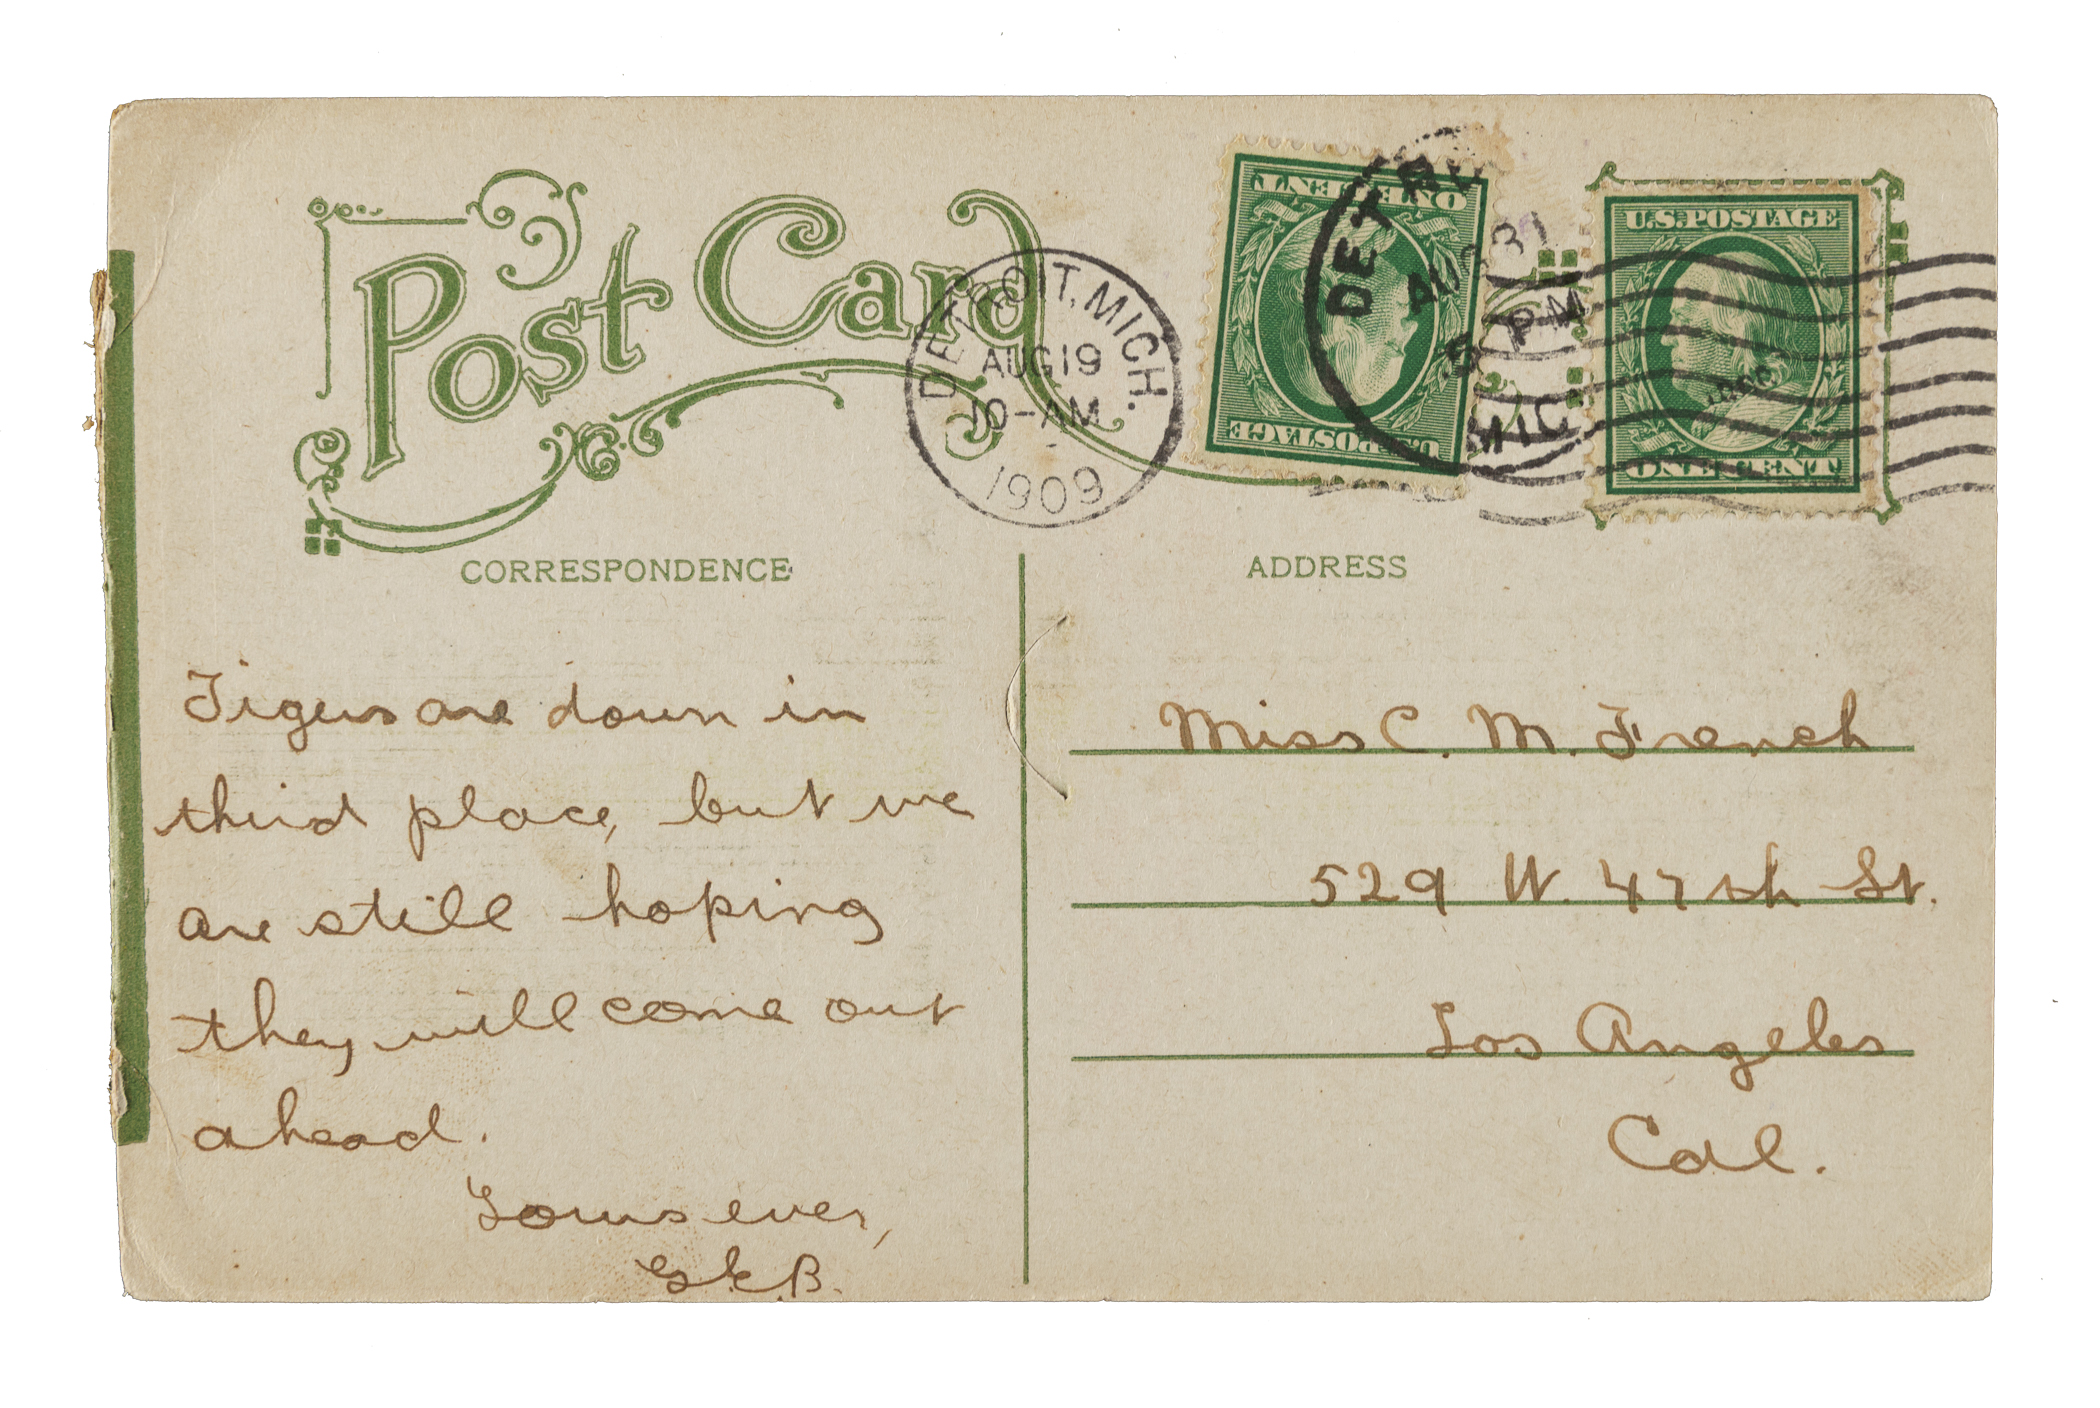 Post Card
DETROIT, MICH.
AUG 19
10-AM
1909
ONE CENT
U.S. POSTAGE
DETR
AUG
5 PM
MIC
U.S. POSTAGE
ONE CENT
CORRESPONDENCE
Tigers are down in
third place, but we
are still hoping
they will come out
ahead.
Yours ever,
G.E.B.
ADDRESS
Miss C. M. French
529 W. 47th St.
Los Angeles
Cal.